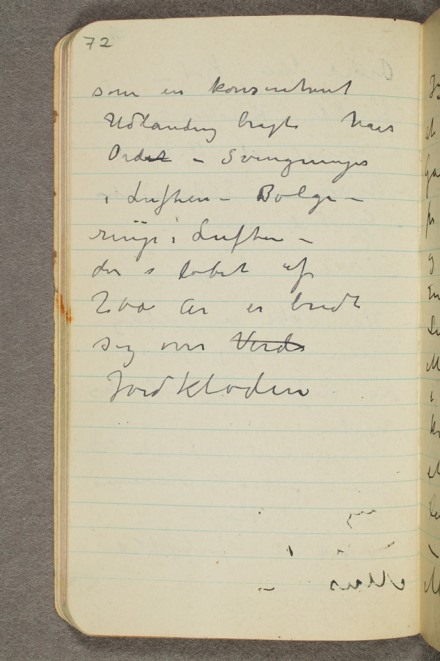 72
som en konsentreret
Udlanding bragte Hans
Ordet – Svingninger
i Luften – Bølge –
ringe i Luften –
der i løbet af
200 År er bredt
sig over Verds
Jordkloden